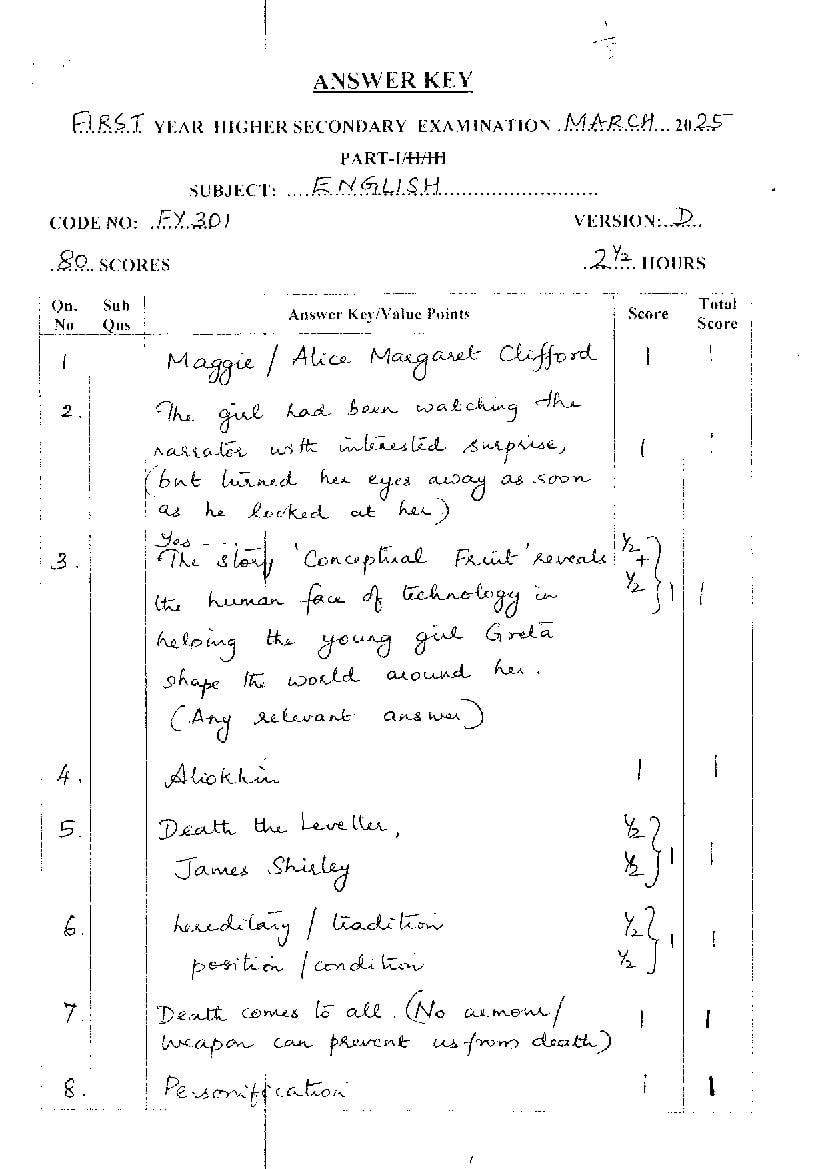 ANSWER KEY
FIRST YEAR HIGHER SECONDARY EXAMINATION MARCH 2025
PART-I/II/III
SUBJECT: ENGLISH
CODE NO: FY 301 VERSION: D
80 SCORES 2 1/2 HOURS
Qn. No Sub Qns Answer Key/Value Points Score Total Score
1 Maggie / Alice Margaret Clifford 1 1
2. The girl had been watching the
narrator with interested surprise, 1 1
(but turned her eyes away as soon
as he looked at her)
Yes - - -
3. The story 'Conceptual Fruit' reveals 1/2 +
the human face of technology in 1/2 } 1 1
helping the young girl Greta
shape the world around her.
(Any relevant answer)
4. Aliokhin 1 1
5. Death the Leveller, 1/2
James Shirley 1/2 } 1 1
6. hereditary / tradition 1/2
position / condition 1/2 } 1 1
7. Death comes to all. (No armour/ 1 1
weapon can prevent us from death)
8. Personification 1 1